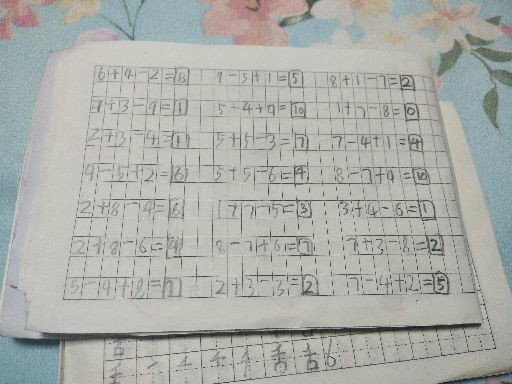 6+4-2=8 9-5+1=5 8+1-7=2
5-4+9=10 1+7-8=0
2+3-4=1 5+5-3=7 7-4+1=4
9-5+2=6 5+5-6=4 8-7+9=10
2+8-4=6 1+7-5=3 3+4-6=1
2+8-6=4 8-7+6=7 7+3-8=2
5-4+8=9 2+3-3=2 7-4+2=5
舌 舌 6